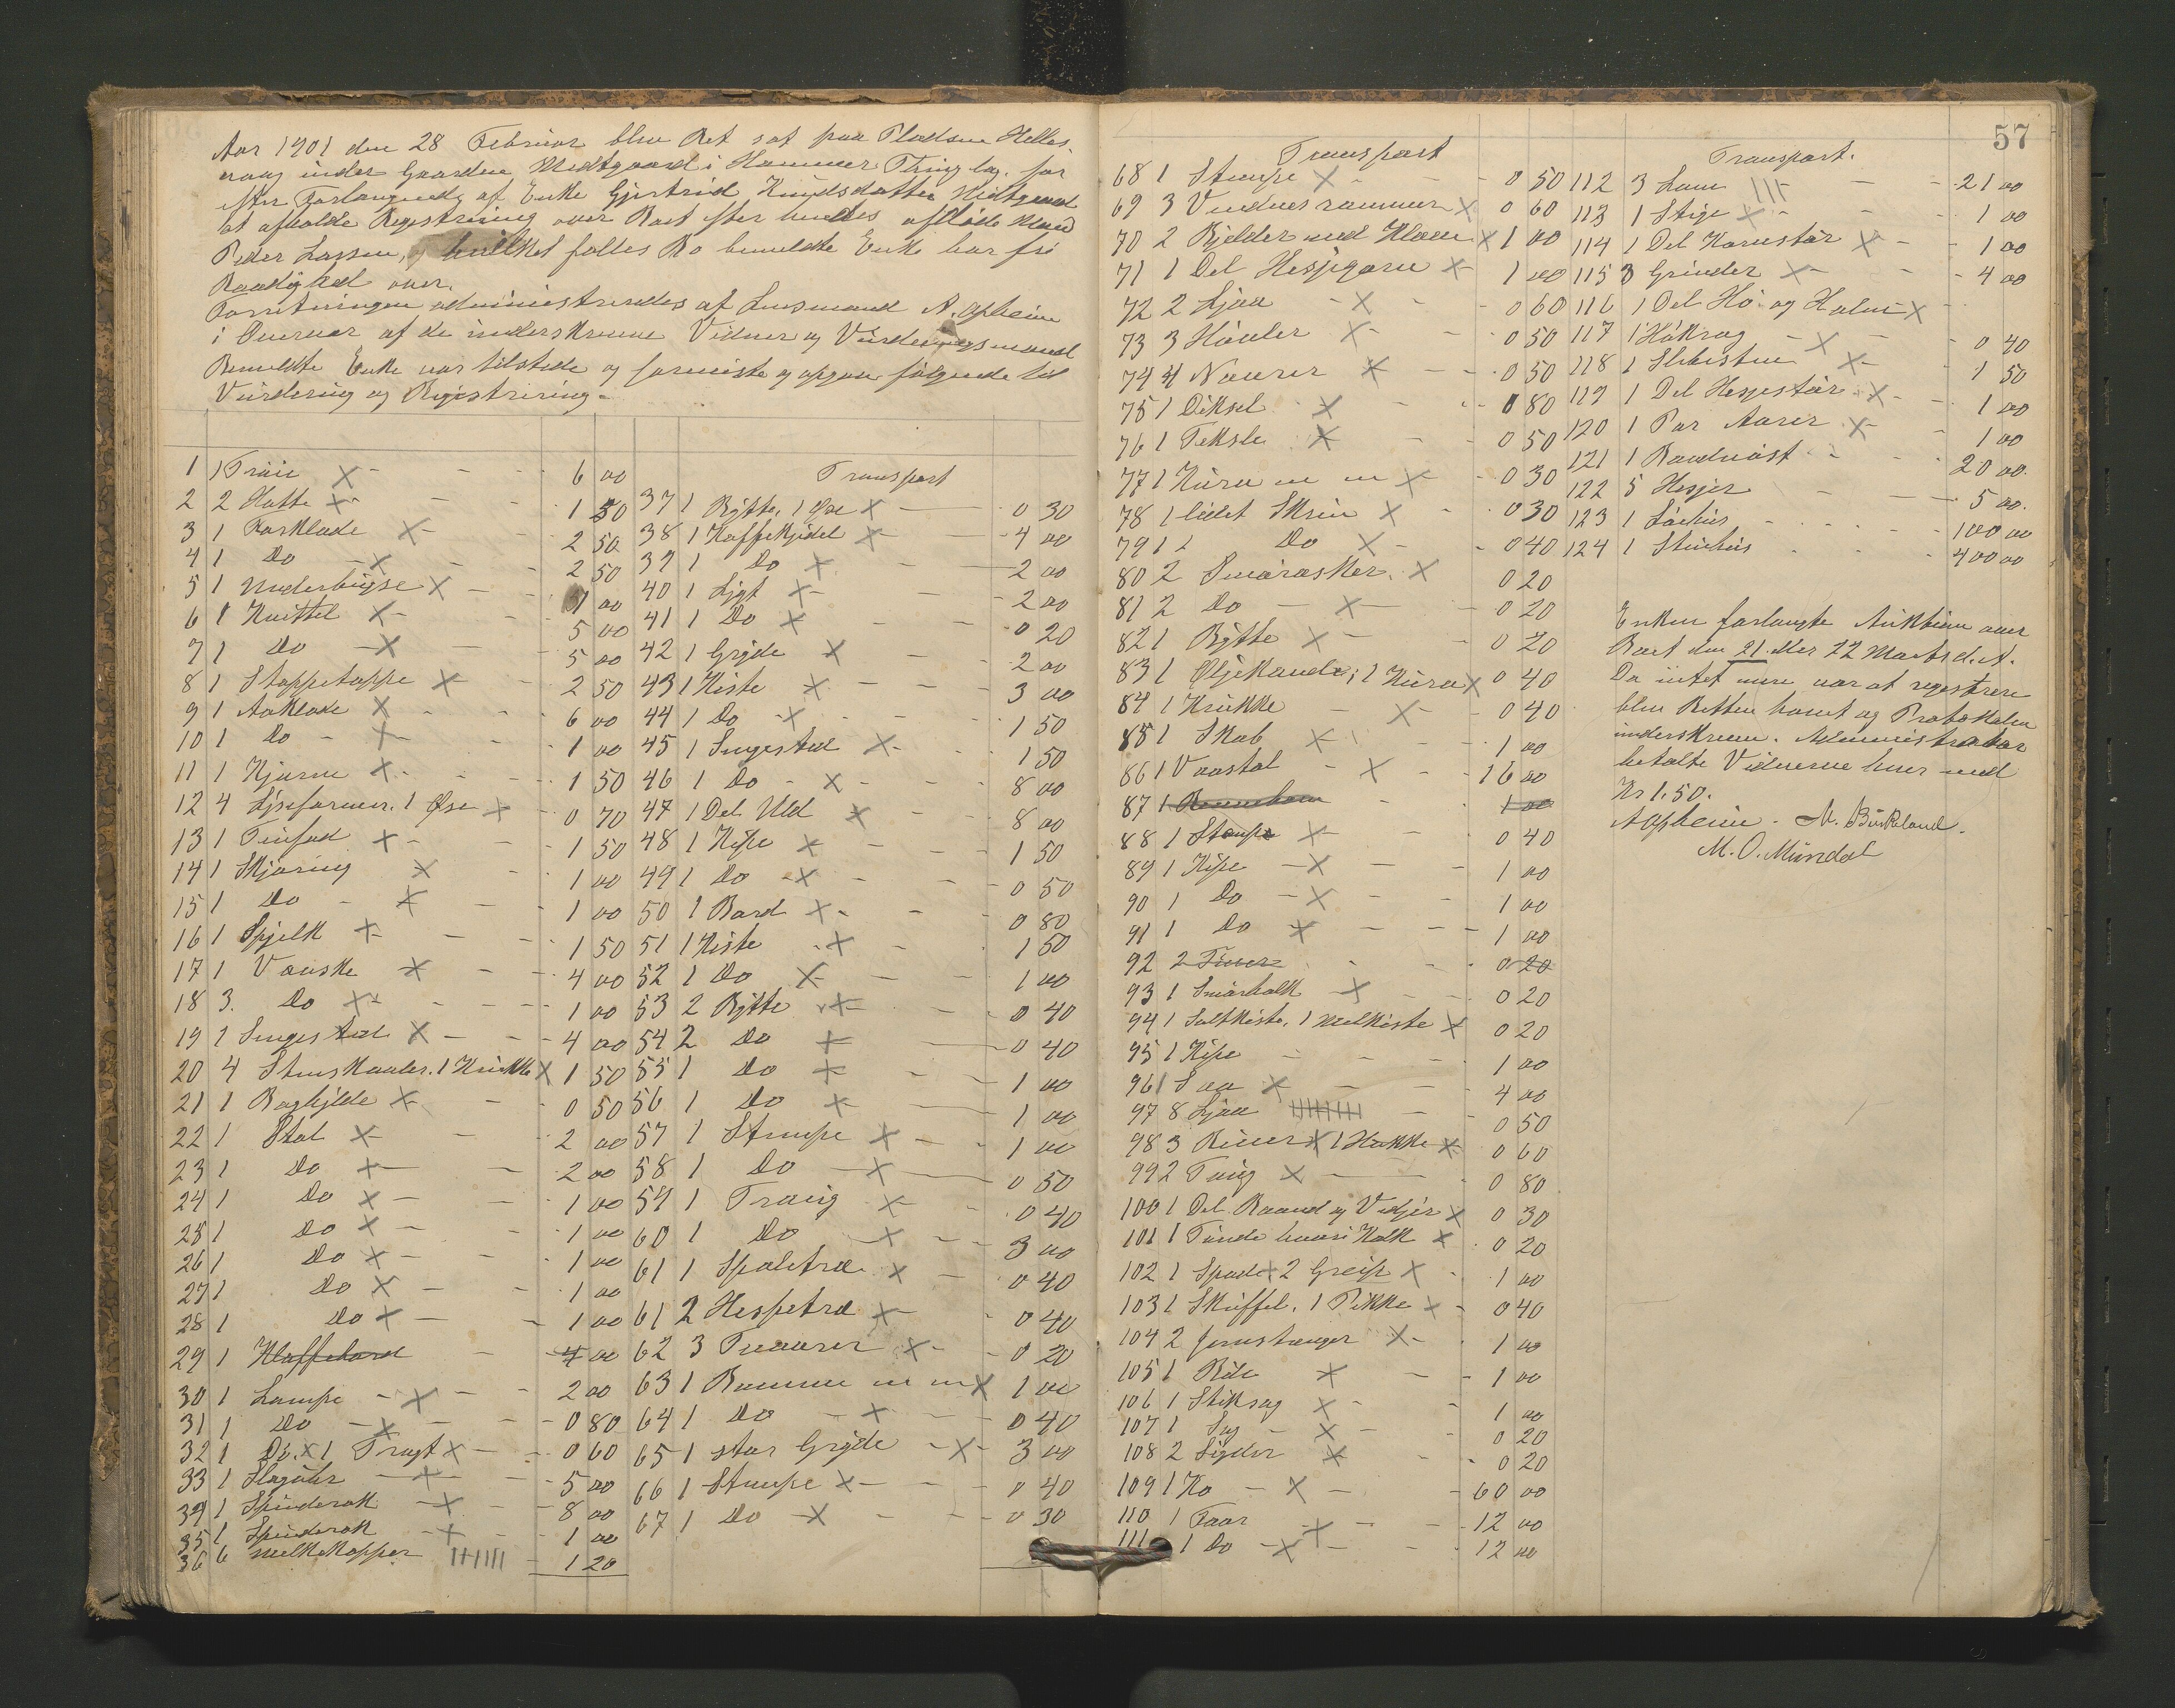 Aar 1901 den 28 Februar blev Ret sat paa Pladsen Helles-
under Gaarden Midtgaard i Hammer Thinglag, for
efter Forlangende af Enke Gjertrud Knudsdatter Midtgaard
at afholde Registrering over Boet efter hendes afdøde Mand
Peder Lassen, hvilket fælles Bo bemeldte Enke har fri
Raadighed over.
Forretningen administreredes af Lensmand A. Opheim
i Overvær af de underskrevne Vidner og Vurderingsmænd
Bemeldte Enke var tilstede og foreviste og opgav følgende til
Vurdering og Registrering.
1 1 Trøie X - - - 6 00
2 2 Hatte X - - 1 50
3 1 Forklæde X - - 2 50
4 1 Do - X - - 2 50
5 1 Underbugse X - - 1 00
6 1 Knittel X - - 5 00
7 1 Do - X - 5 00
8 1 Stoppetæppe X - 2 50
9 1 Aaklæde X - - 6 00
10 1 Do - X - - 1 00
11 1 Kjærne X - - 1 50
12 4 Lyseformer. 1 Øse X - 0 70
13 1 Tinfad X - - 1 50
14 1 Skjæring X - 1 00
15 1 Do - X - 1 00
16 1 Spjelk X - - 1 50
17 1 Vanske X - - 4 00
18 3. Do X - - - 1 00
19 1 Sengested X - - - 4 00
20 4 Stenskaaler. 1 Krukke X 1 50
21 1 Baghylde X - - 0 50
22 1 Stol X - - 2 00
23 1 Do X - - 2 00
24 1 Do X - - 1 00
25 1 Do X - - 1 00
26 1 Do X - - 1 00
27 1 Do X - - 1 00
28 1 Do X - - 1 00
29 1 Klaffebord - 4 00
30 1 Lampe - X - - 2 00
31 1 Do - X - - - 0 80
32 1 Do. X 1 Tragt X - - 0 60
33 1 Slaguhr - X - - 5 00
34 1 Spinderok - X - - 8 00
35 1 Spinderok - X - - 1 00
36 6 Melkekopper |||||| - 1 20
Transport
37 1 Bøtte, 1 Øse X - 0 30
38 1 Kaffekjedel X - - 4 00
39 1 Do X - - 2 00
40 1 Lygt X - - 2 00
41 1 Do X - - 0 20
42 1 Gryde X - - 2 00
43 1 Kiste X - - - 3 00
44 1 Do - X - - - 1 50
45 1 Sengested X - - 1 50
46 1 Do - X - - 8 00
47 1 Del Uld X - - 8 00
48 1 Kipe X - - - 1 50
49 1 Do - X - - 0 50
50 1 Bord X - - 0 80
51 1 Kiste - X - 1 50
52 1 Do X - - 1 00
53 2 Bøtte X - - 0 40
54 2 Do X - 0 40
55 1 Do X - - 1 00
56 1 Do X - 1 00
57 1 Stampe X - - 1 00
58 1 Do - X - 0 50
59 1 Traug X - - 0 40
60 1 Do - X - - 3 00
61 1 Spoletræ X - - 0 40
61 2 Hespetræ X - - 0 40
62 3 Tvaarer X - - 0 20
63 1 Bamme m m X 1 00
64 1 Do - X - - 0 40
65 1 stor Gryde - X - 3 00
66 1 Stampe X - - - 0 40
67 1 Do - X - - 0 30
57
Transport
68 1 Stampe X - - - 0 50
69 3 Vinduesrammer X 0 60
70 2 Bjelder med Klave X 1 00
71 1 Del Hesjegarn X - 1 00
72 2 Ljaa - X - - 0 60
73 3 Høvler X - - - 0 50
74 4 Navrer X - - 0 50
75 1 Diksel X - - - 0 80
76 1 Teksle X - - 0 50
77 1 Kurv m m X - - 0 30
78 1 lidet Skrin X - 0 30
79 1 Do X - - 0 40
80 2 Smørasker. X 0 20
81 2 Do - X - - 0 20
82 1 Bøtte X - - 0 20
83 1 Oljekande; 1 Kurv X 0 40
84 1 Krukke - X - 0 40
85 1 Skab X - - 1 00
86 1 Vævstol - X - - 16 00
87 1 - 1 00
88 1 Stampe X - - 0 40
89 1 Kipe - X - - 1 00
90 1 Do - X - - 1 00
91 1 Do X - - - 1 00
92 2 Tiner - - 0 20
93 1 Smørholk - X - - 0 20
94 1 Saltkiste, 1 Melkiste X 0 20
95 1 Kipe - - - 1 00
96 1 Saa X - - - 4 00
97 8 Ljaa |||||||| - - 0 50
98 3 River X 1 Hakke X - 0 60
99 2 Taug X - - 0 80
100 1 Del Baand og Vidjer X 0 30
101 1 Tønde hvori Kalk X 0 20
102 1 Spade X 2 Greip X - 1 00
103 1 Skuffel. 1 Pikke X - 0 40
104 2 Jernstænger X - - 1 00
105 1 Bile X - - 1 00
106 1 Stiksag X - - 1 00
107 1 Sag - X - - 0 20
108 2 Sigder X - - 0 20
109 1 Ko - X - - 60 00
110 1 Faar - X - - 12 00
111 1 Do - X - - 12 00
Transport.
112 3 Lam ||| - - 21 00
113 1 Stige X - - 1 00
114 1 Del Kornstør X - - 1 00
115 3 Grinder X - - - 4 00
116 1 Del Hø og Halm X
117 1 Høkrog - X - 0 40
118 1 Slibesten X - 1 50
119 1 Del Hesjestør X - - 1 00
120 1 Par Aarer X - - 1 00
121 1 Baadnøst - - 20 00.
122 5 Hesjer - - - 5 00.
123 1 Løehus - - - - 100 00
124 1 Stuehus - - 400 00
Enken forlangte Auktion over
Boet den 21. eller 22 Marts d. A.
Da intet mere var at registrere
blev Retten hævet og Protokolen
underskreven. Administrator
betalte Vidnerne hver med
Kr 1.50.
A Opheim. N. Buskeland.
M. O. Mundal